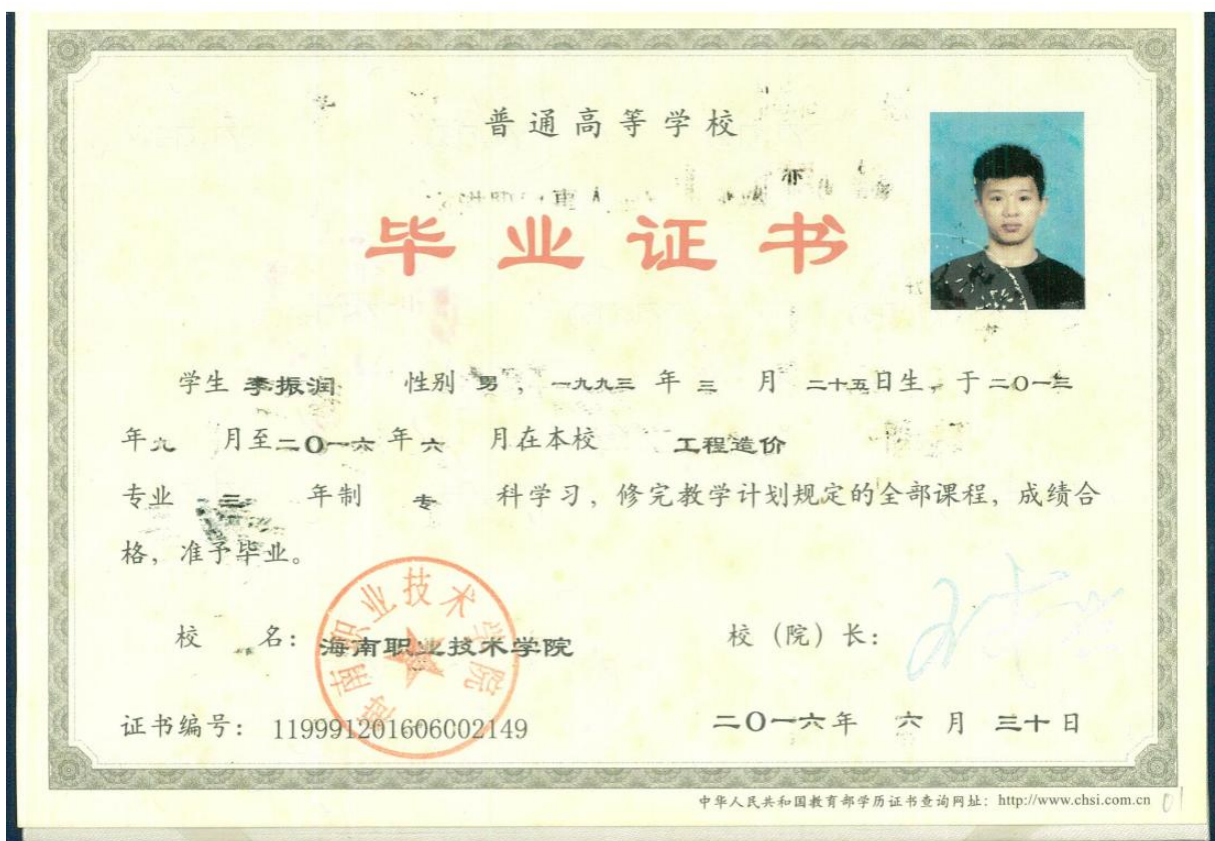 普通高等学校
毕业证书
学生 李振润 性别 男，一九九三 年 三 月 二十五日生，于二〇一三
年九 月至二〇一六 年六 月在本校 工程造价
专业 三 年制 专 科学习，修完教学计划规定的全部课程，成绩合
格，准予毕业。
海南职业技术学院
校 名：海南职业技术学院
校（院）长：
证书编号：119991201606002149
二〇一六年 六 月 三十日
中华人民共和国教育部学历证书查询网址：http://www.chsi.com.cn
01